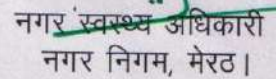 नगर स्वस्थ्य अधिकारी
नगर निगम, मेरठ।